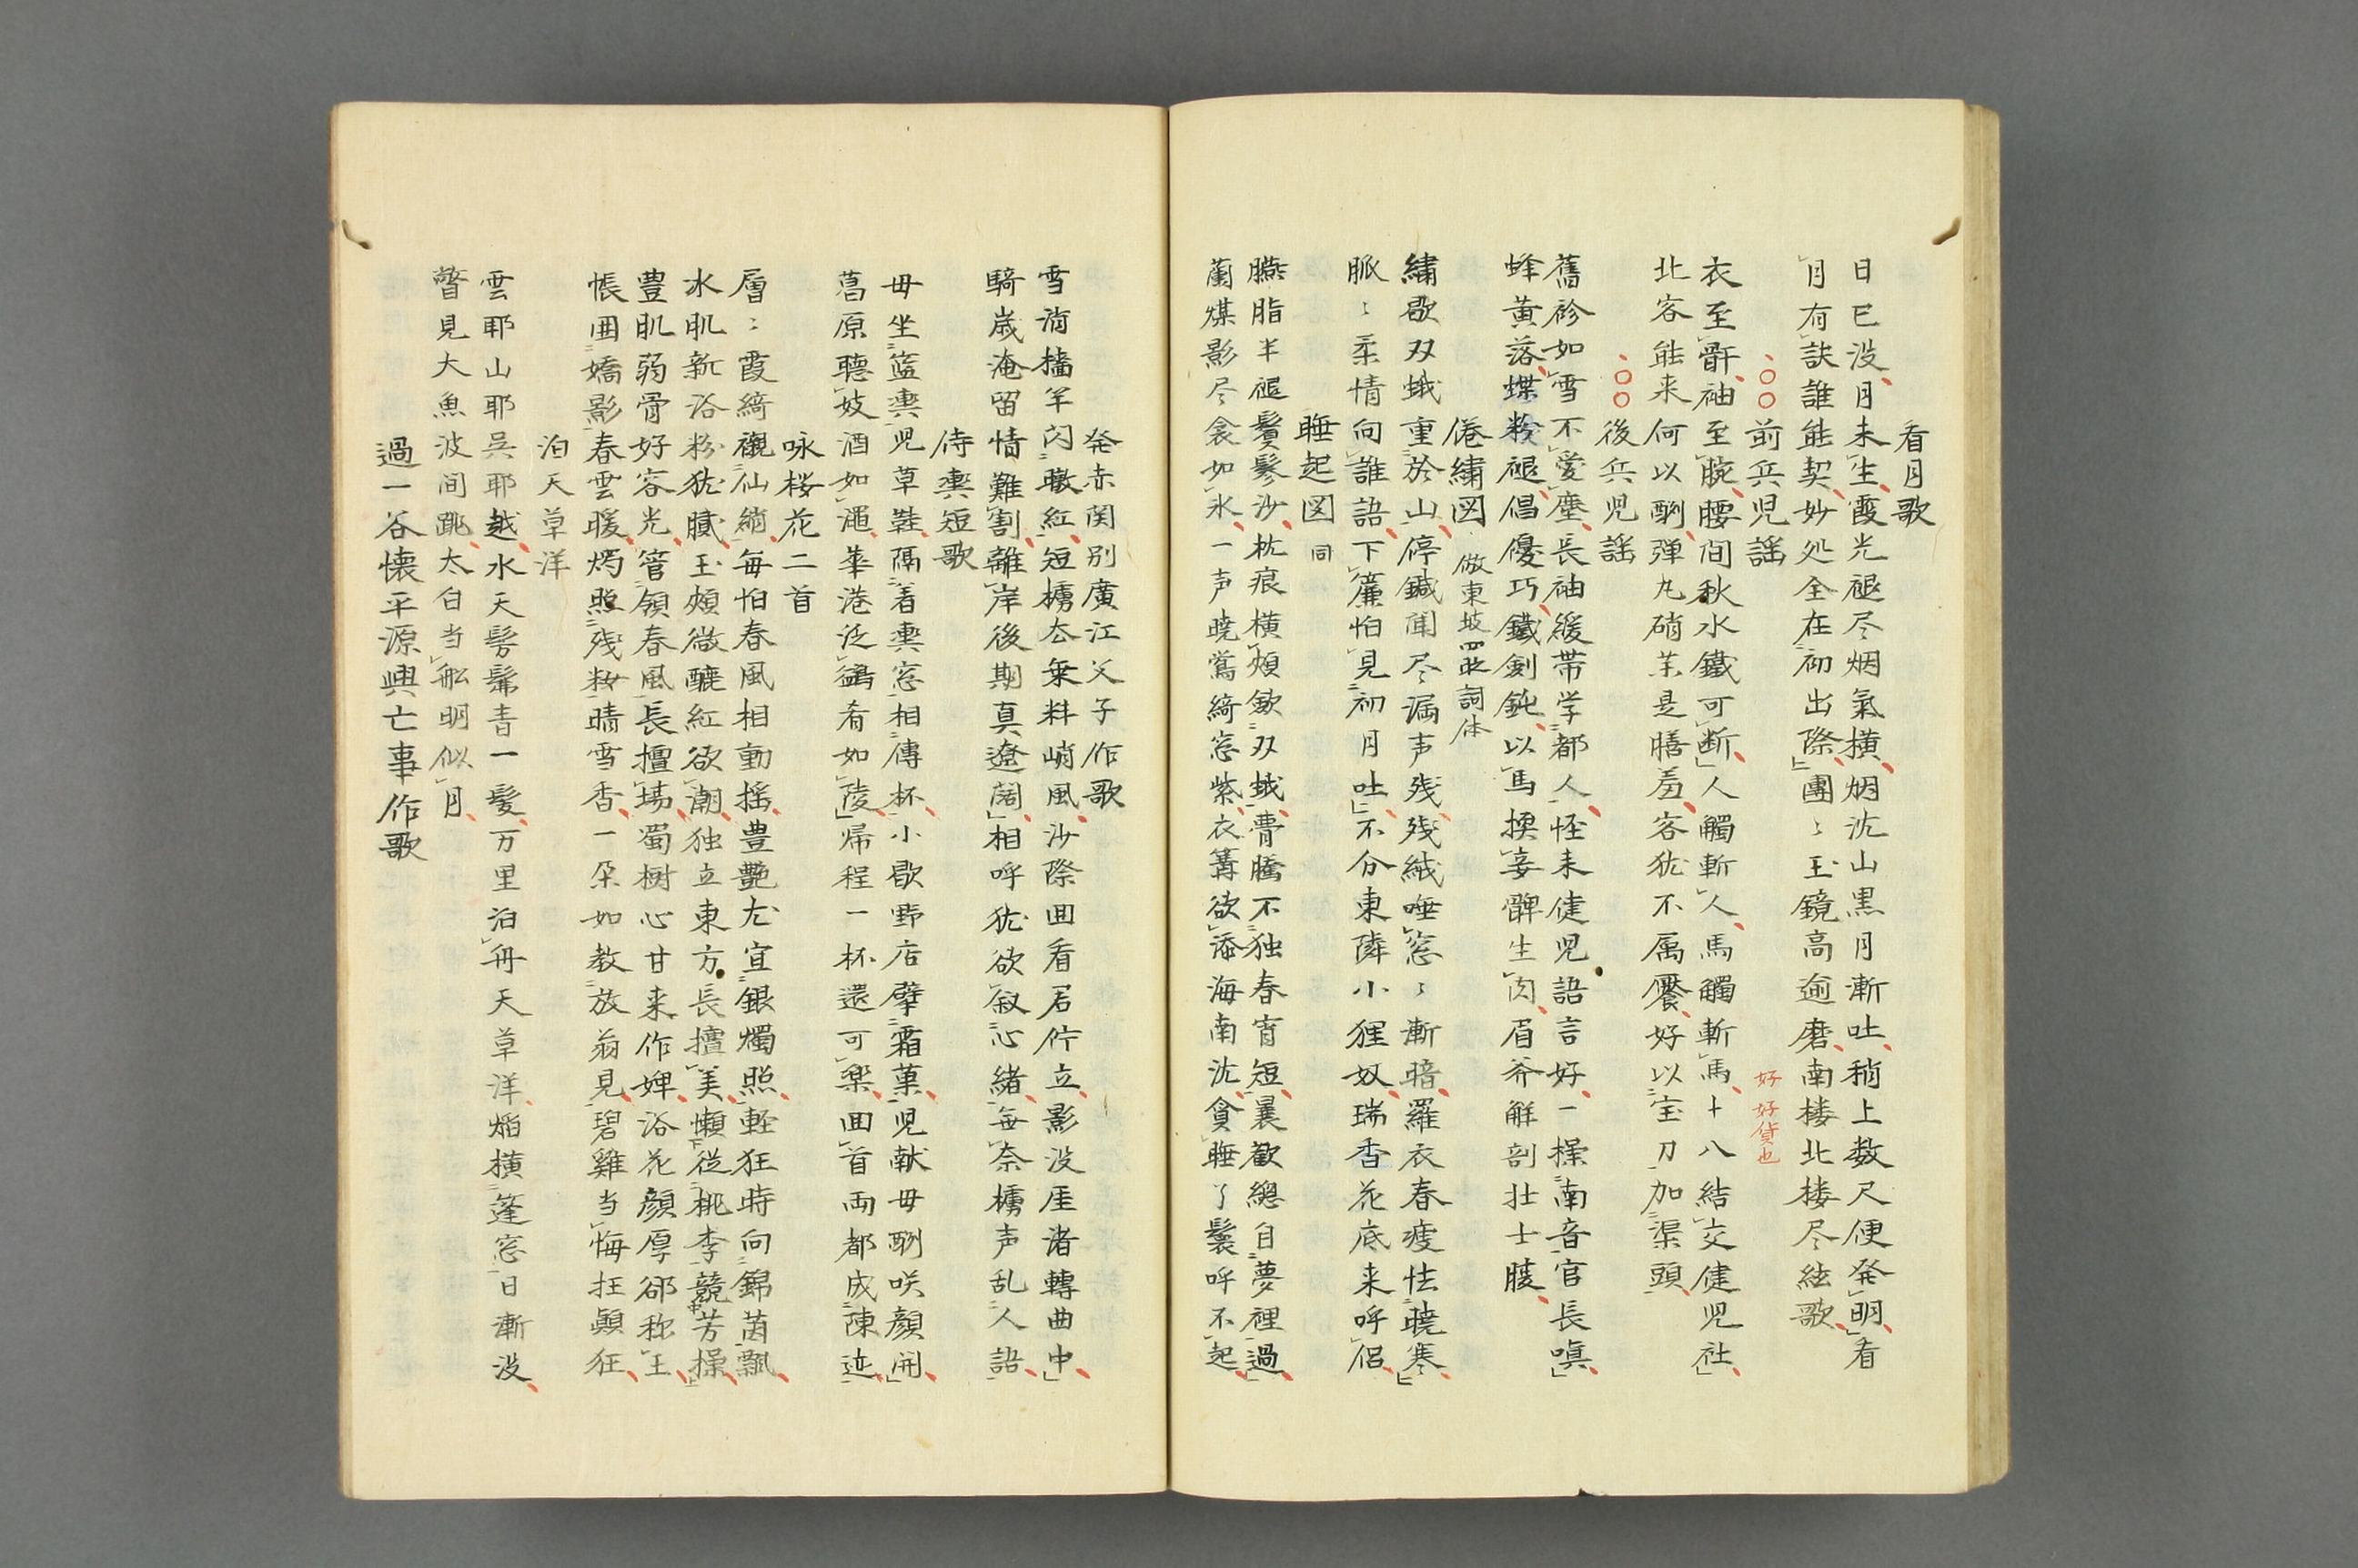 看月歌
日已没月未生霞光褪尽烟氣横烟沈山黒月漸吐稍上数尺便発明看
月有訣誰能契妙処全在初出際團〻玉鏡高逾磨南楼北楼尽絃歌
○○前兵児謡
好 好貨也
衣至骭袖至腕腰間秋水鐵可断人觸斬人馬觸斬馬十八結交健児社
北客能来何以酬弾丸硝茉是膳羞客犹不属饜好以宝刀加渠頭
○○後兵児謡
舊袗如雪不愛塵長袖緩帯学都人恠来健児語言好一操南音官長嗔
蜂黄落蝶粉褪倡優巧鐵劍鈍以馬換妾髀生肉眉斧解剖壮士腹
倦繡図 倣東坡四時詞体
繡歇双蛾重於山停鍼聞尽漏声残残絨唾窓〻漸暗羅衣春痩怯暁寒
脈〻柔情向誰語下簾怕見初月吐不分東隣小狸奴瑞香花底来呼侶
睡起図 同
臙脂半褪鬢鬖沙枕痕横頰欹双蛾瞢騰不独春宵短曩歓總自夢裡過
蘭煤影尽衾如氷一声暁鶯綺窓紫衣篝欲添海南沈貪睡了鬟呼不起
発赤関別廣江父子作歌
雪消檣竿閃曒紅短櫓厺乗料峭風沙際回看君佇立影没厓渚轉曲中
騎嵗淹留情難割離岸後期真遼闊相呼犹欲叙心緒毎奈櫓声乱人語
侍輿短歌
毋坐籃輿児草鞋隔着輿窓相傳杯小歇野店擘霜菓児献毋酬咲顔開
菖原聴妓酒如澠華港泛鷁肴如陵帰程一杯還可楽回首両都成陳迹
咏桜花二首
層〻霞綺襯仙綃毎怕春風相動揺豊艶尤宜銀燭照軽狂時向錦茵飄
氷肌新浴粉犹膩玉頰微醺紅欲潮独立東方長擅美懶従桃李競芳操
豊肌弱骨好容光管領春風長擅場蜀樹心甘来作婢浴花顔厚郤称王
帳囲嬌影春雲暖燭照残粧晴雪香一朶如教放翁見碧雞当悔狂顛狂
泊天草洋
雲耶山耶呉耶越水天髣髴青一髪万里泊舟天草洋烟横篷窓日漸没
瞥見大魚波間跳太白当舩明似月
過一谷懐平源興亡事作歌